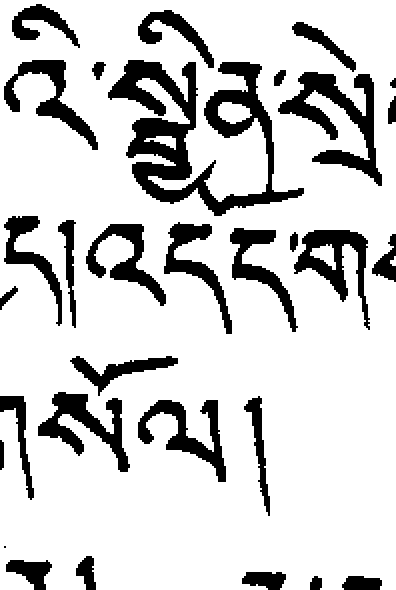 འི་སྦྱིན་སྲེ
ད།འདད་ག
གསོལ།